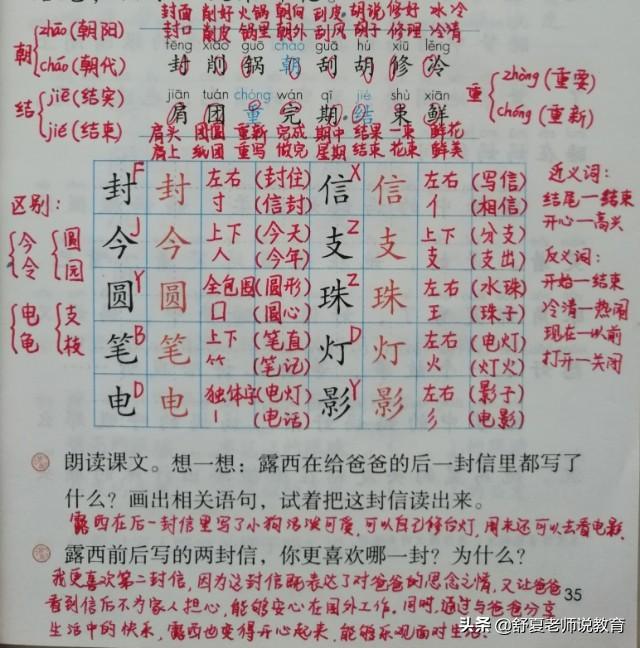 封面 削好 火锅 朝向 刮皮 胡说 修好 冰冷
封口 削皮 锅里 朝外 刮风 胡子 修理 冷清
zhāo (朝阳)
朝
cháo (朝代)
fēng xiāo guō cháo guā hú xiū lěng
封 削 锅 朝 刮 胡 修 冷
jiē (结实)
结
jié (结束)
zhòng (重要)
重
chóng (重新)
jiān tuán chóng wán qī jié shù xiān
肩 团 重 完 期 结 束 鲜
肩头 团圆 重新 完成 期中 结果 一束 鲜花
肩上 纸团 重写 做完 星期 结束 花束 鲜美
区别:
今 圆
令 园
电 支
龟 枝
封 F 封 左右 (封住) 信 X 信 左右 (写信)
寸 (信封) 亻 (相信)
今 J 今 上下 (今天) 支 Z 支 上下 (分支)
人 (今年) 支 (支出)
圆 Y 圆 全包围 (圆形) 珠 Z 珠 左右 (水珠)
囗 (圆心) 王 (珠子)
笔 B 笔 上下 (笔直) 灯 D 灯 左右 (电灯)
⺮ (笔记) 火 (灯火)
电 D 电 独体字 (电灯) 影 Y 影 左右 (影子)
(电话) 彡 (电影)
近义词:
结尾—结束
开心—高兴
反义词:
开始—结束
冷清—热闹
现在—以前
打开—关闭
朗读课文。想一想:露西在给爸爸的后一封信里都写了
什么?画出相关语句,试着把这封信读出来。
露西在后一封信里写了小狗活泼可爱,可以自己修台灯,周末还可以去看电影。
露西前后写的两封信,你更喜欢哪一封?为什么?
我更喜欢第二封信,因为这封信既表达了对爸爸的思念之情,又让爸爸
看到信后不为家人担心,能够安心在国外工作。同时,通过与爸爸分享
生活中的快乐,露西也变得开心起来,能够乐观面对生活。
35
头条 @舒夏老师说教育